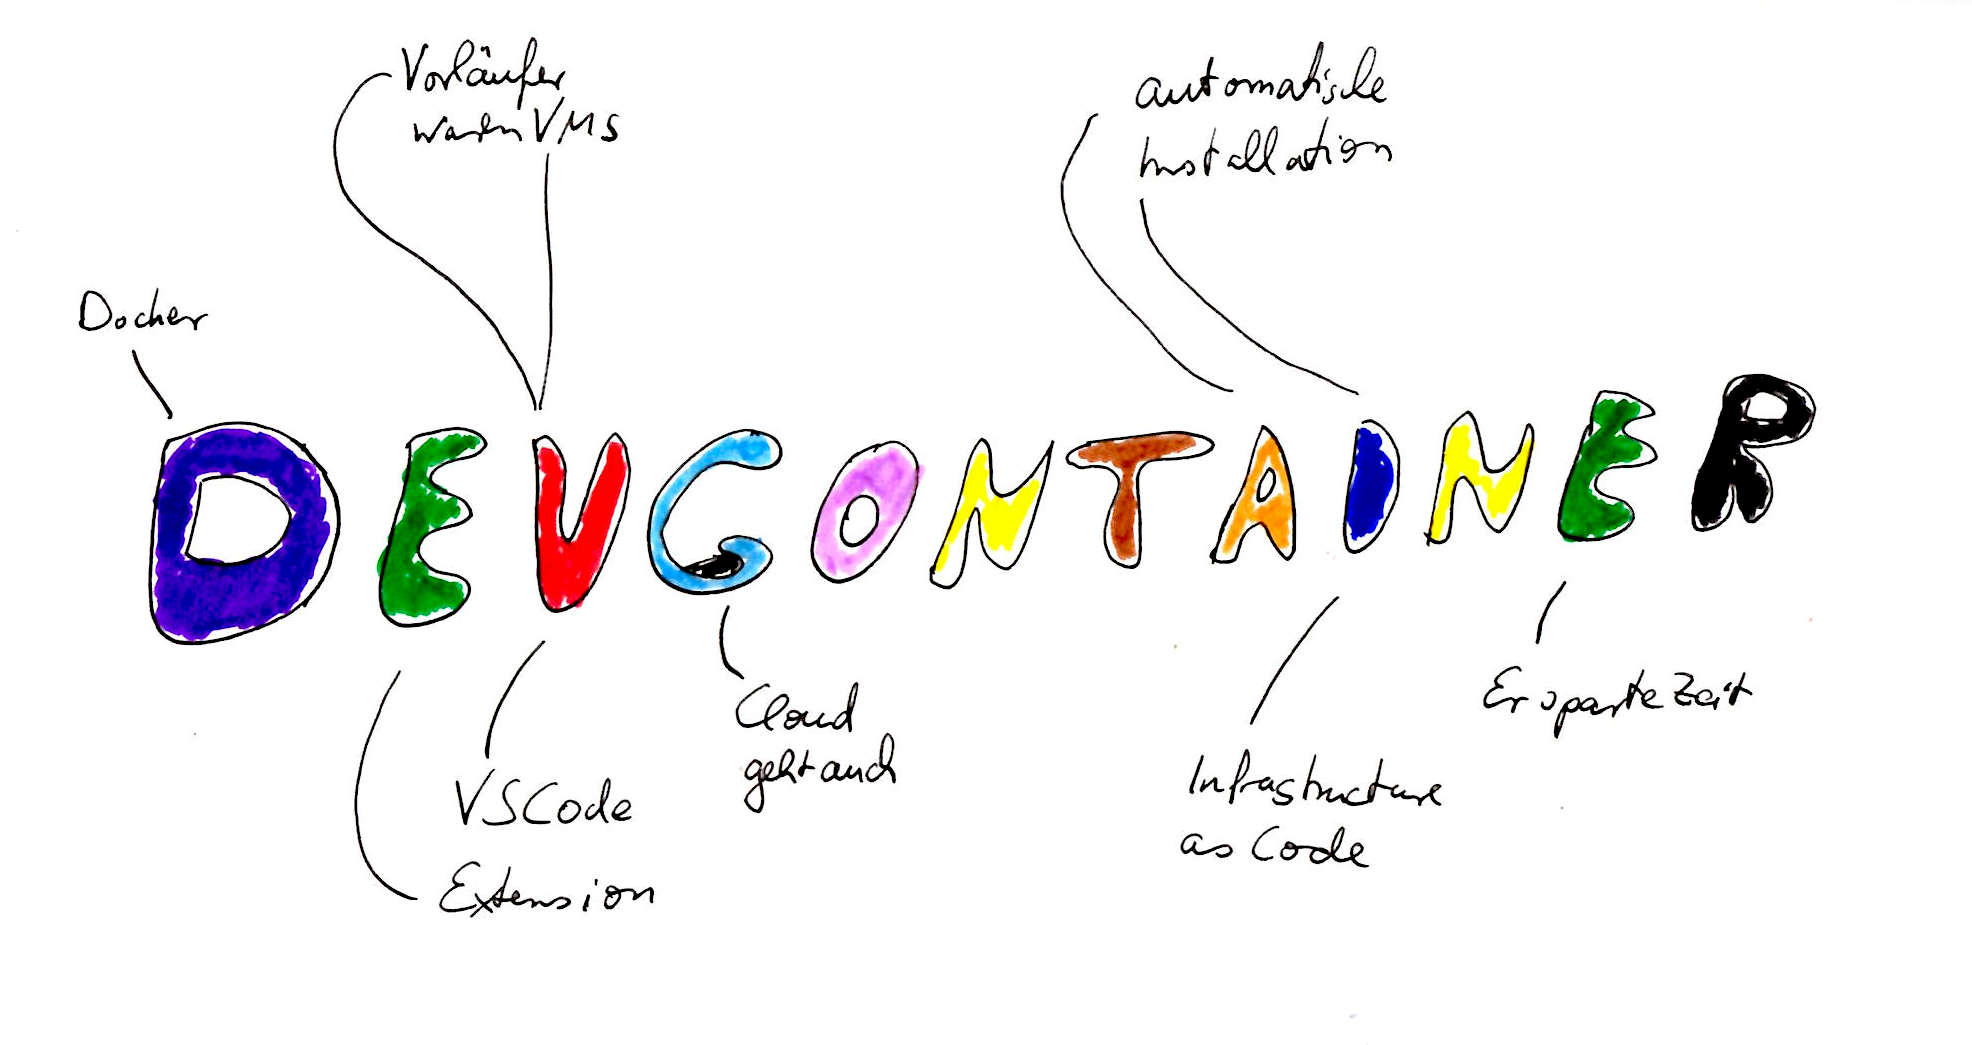 Vorläufer
waren VMs
automatische
Installation
Docker
DEVCONTAINER
Cloud
geht auch
VSCode
Extension
Ersparte Zeit
Infrastructure
as Code